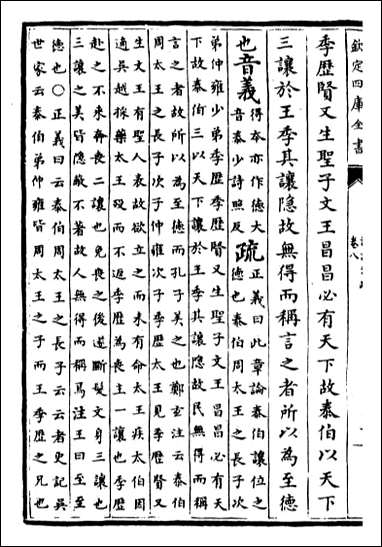 欽定四庫全書
卷八
季歴賢又生聖子文王昌昌必有天下故泰伯以天下
三讓於王季其讓隐故無得而稱言之者所以為至徳
也音義得本亦作徳大音泰少詩照反疏正義曰此章論泰伯讓位之徳也泰伯周太王之長子次
弟仲雍少弟季歴季歴賢又生聖子文王昌昌必有天
下故泰伯三以天下讓於王季其讓隐故民無得而稱
言之者故所以為至徳而孔子美之也鄭𤣥注云泰伯
周太王之長子次子仲雍次子季歴太王見季歴賢又
生文王有聖人表故欲立之而未有命太王疾太伯因
適吳越採藥太王歿而不返季歴為喪主一讓也季歴
赴之不来奔喪二讓也免喪之後遂斷髮文身三讓也
三讓之美皆隐蔽不著故人無得而稱焉注王曰至至
徳也○正義曰云泰伯周太王之長子云云者史記吳
世家云泰伯弟仲雍皆周太王之子而王季歴之兄也